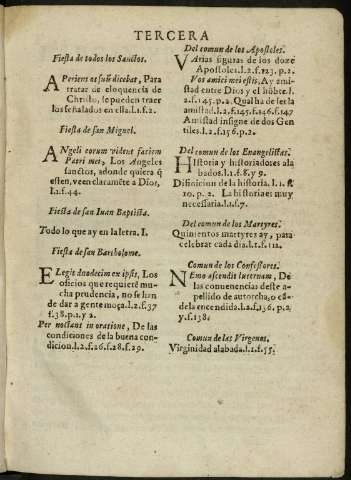 TERCERA
Fiesta de todos los Sanctos.
APeriens os suũ dicebat, Para
tratar de eloquencia de
Christo, se pueden traer
los señalados en ella. l.1.f.2.
Fiesta de san Miguel.
ANgeli eorum vident faciem
Patri mei, Los Angeles
sanctos, adonde quiera q̃
esten, veen claramẽte a Dios,
l.1.f.44.
Fiesta de san Iuan Baptista.
Todo lo que ay en la letra. I.
Fiesta de san Bartholome.
ELegit duodecim ex ipsis, Los
oficios que requierẽ mu-
cha prudencia, no se han
de dar a gente moça. l.2.f.37
f.38.p.1.y 2.
Per noctans in oratione, De las
condiciones de la buena con-
dicion. l.2.f.26.f.28.f.29.
Del comun de los Apostoles.
VArias figuras de los doze
Apostoles. l.2.f.123.p.2.
Vos amici mei estis, Ay amis-
tad entre Dios y el hõbre. l.
2.f.145.p.2. Qual ha de ser la
amistad. l.2.f.145.f.146.f.147
Amistad insigne de dos Gen
tiles. l.2.f.156.p.2.
Del comun de los Euangelistas.
HIstoria y historiadores ala
bados. l.1.f.8.y 9.
Difinicion de la historia. l.1.f.
10.p.2. La historia es muy
necessaria. l.1.f.7.
Del comun de los Martyres.
Quinientos martyres ay, para
celebrar cada dia. l.1.f.112.
Comun de los Confessores.
NEmo ascendit lucernam, De
las conueniencias deste a-
pellido de antorcha, o cã-
dela encendida. l.2.f.136.p.2.
y f.138.
Comun de las Virgenes.
Virginidad alabada. l.1.f.55.